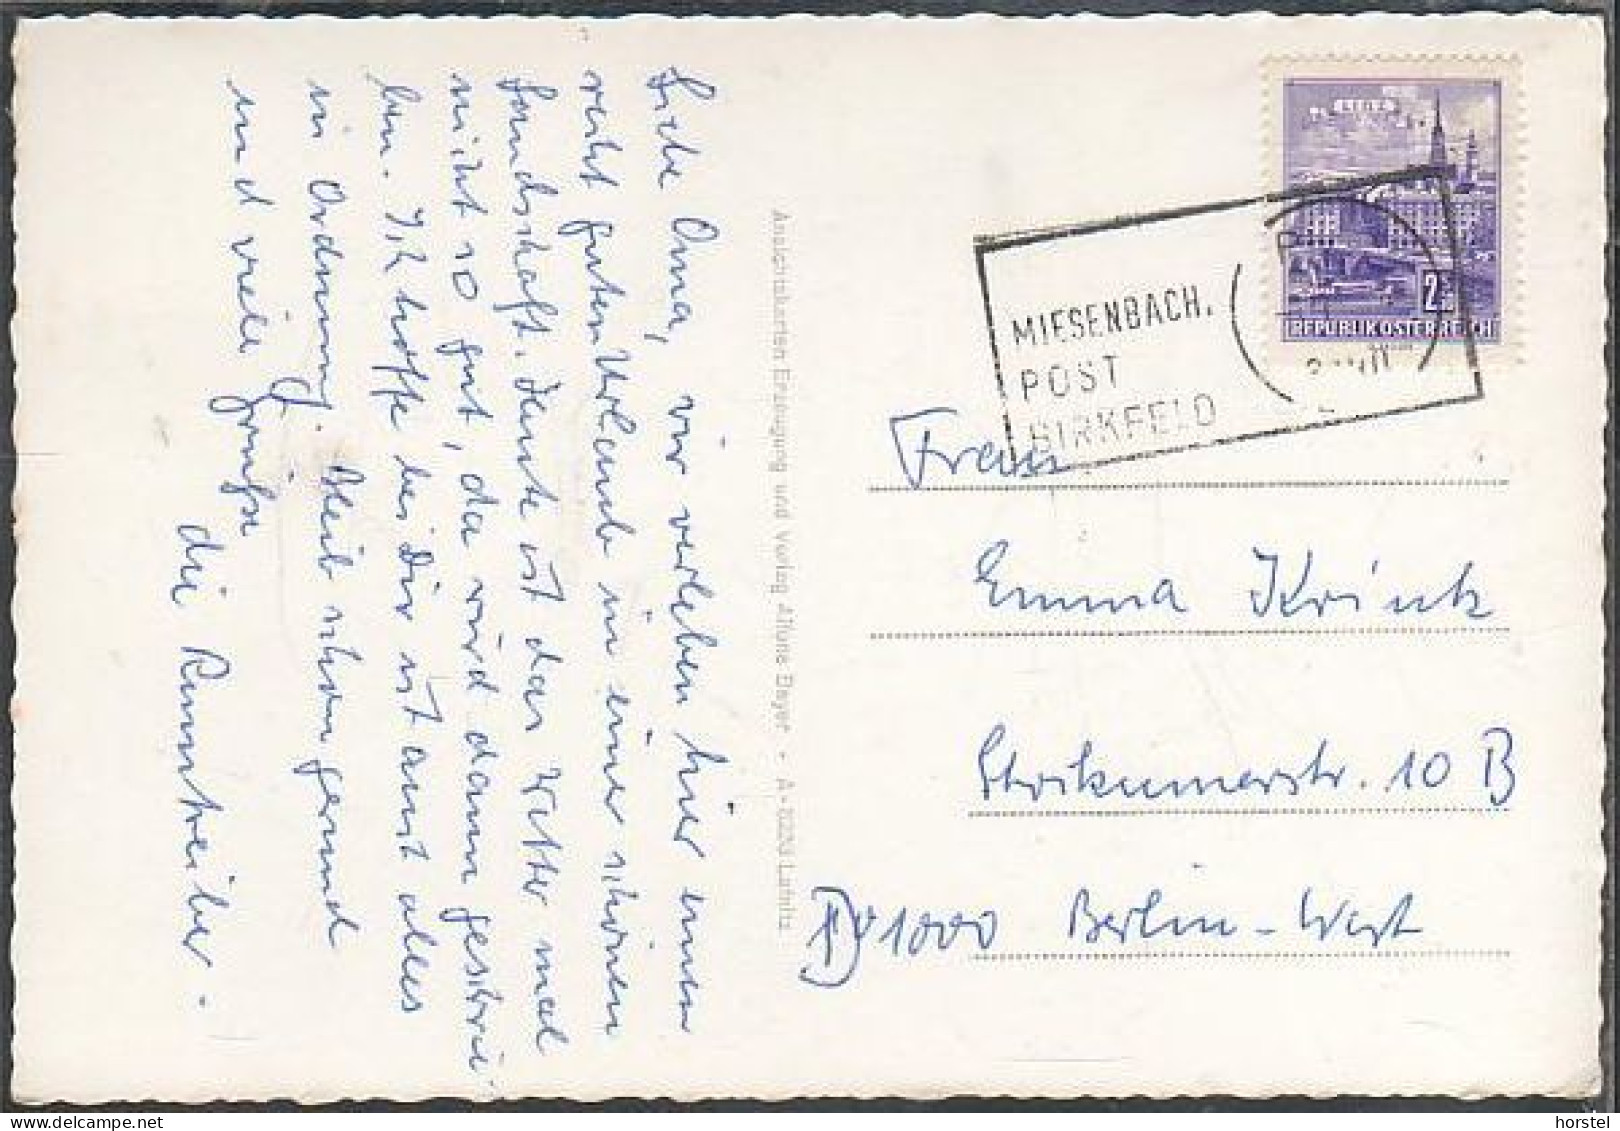 Liebe Oma, wir verleben hier einen
recht guten Urlaub in einer schönen
Landschaft. Heute ist das Wetter mal
nicht so gut, da wird dann geschrie-
ben. Ich hoffe bei Dir ist auch alles
in Ordnung. Bleib schön gesund
und viele Grüße
die
Ansichtskarten Erzeugung und Verlag Alfons Bayer • A-8233 Lafnitz
LINZ
2.50
REPUBLIK ÖSTERREICH
MIESENBACH.
POST
BIRKFELD
Frau
Emma
10 B
D 1000 Berlin-West
horstel